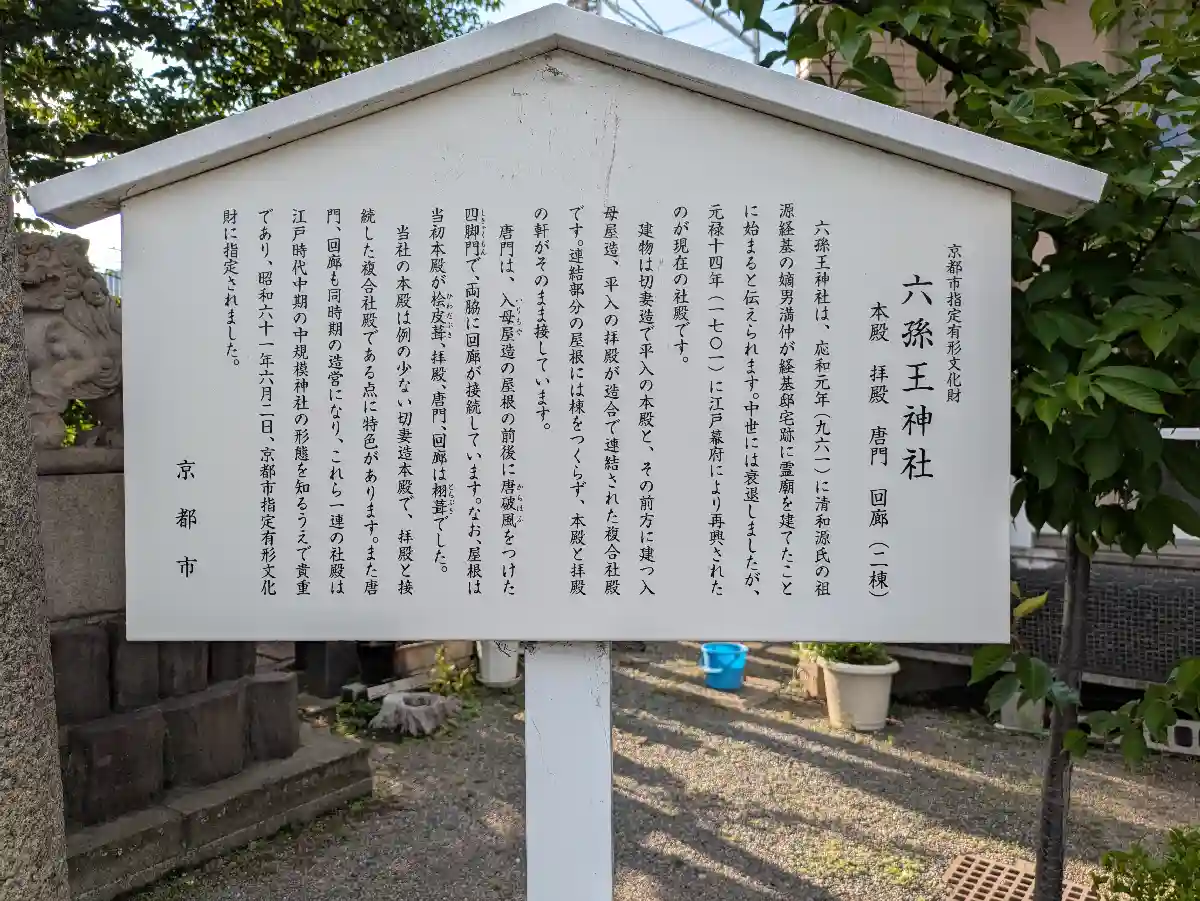 京都市指定有形文化財
六孫王神社
本殿 拝殿 唐門 回廊(二棟)
六孫王神社は、応和元年(九六一)に清和源氏の祖
源経基の嫡男満仲が経基邸宅跡に霊廟を建てたこと
に始まると伝えられます。中世には衰退しましたが、
元禄十四年(一七〇一)に江戸幕府により再興された
のが現在の社殿です。
建物は切妻造で平入の本殿と、その前方に建つ入
母屋造、平入の拝殿が造合で連結された複合社殿
です。連結部分の屋根には棟をつくらず、本殿と拝殿
の軒がそのまま接しています。
唐門は、入母屋造の屋根の前後に唐破風をつけた
いりもや
からはふ
四脚門で、両脇に回廊が接続しています。なお、屋根は
しきゃくもん
当初本殿が桧皮葺、拝殿、唐門、回廊は栩葺でした。
ひわだぶき
とちぶき
当社の本殿は例の少ない切妻造本殿で、拝殿と接
続した複合社殿である点に特色があります。また唐
門、回廊も同時期の造営になり、これら一連の社殿は
江戸時代中期の中規模神社の形態を知るうえで貴重
であり、昭和六十一年六月二日、京都市指定有形文化
財に指定されました。
京都市